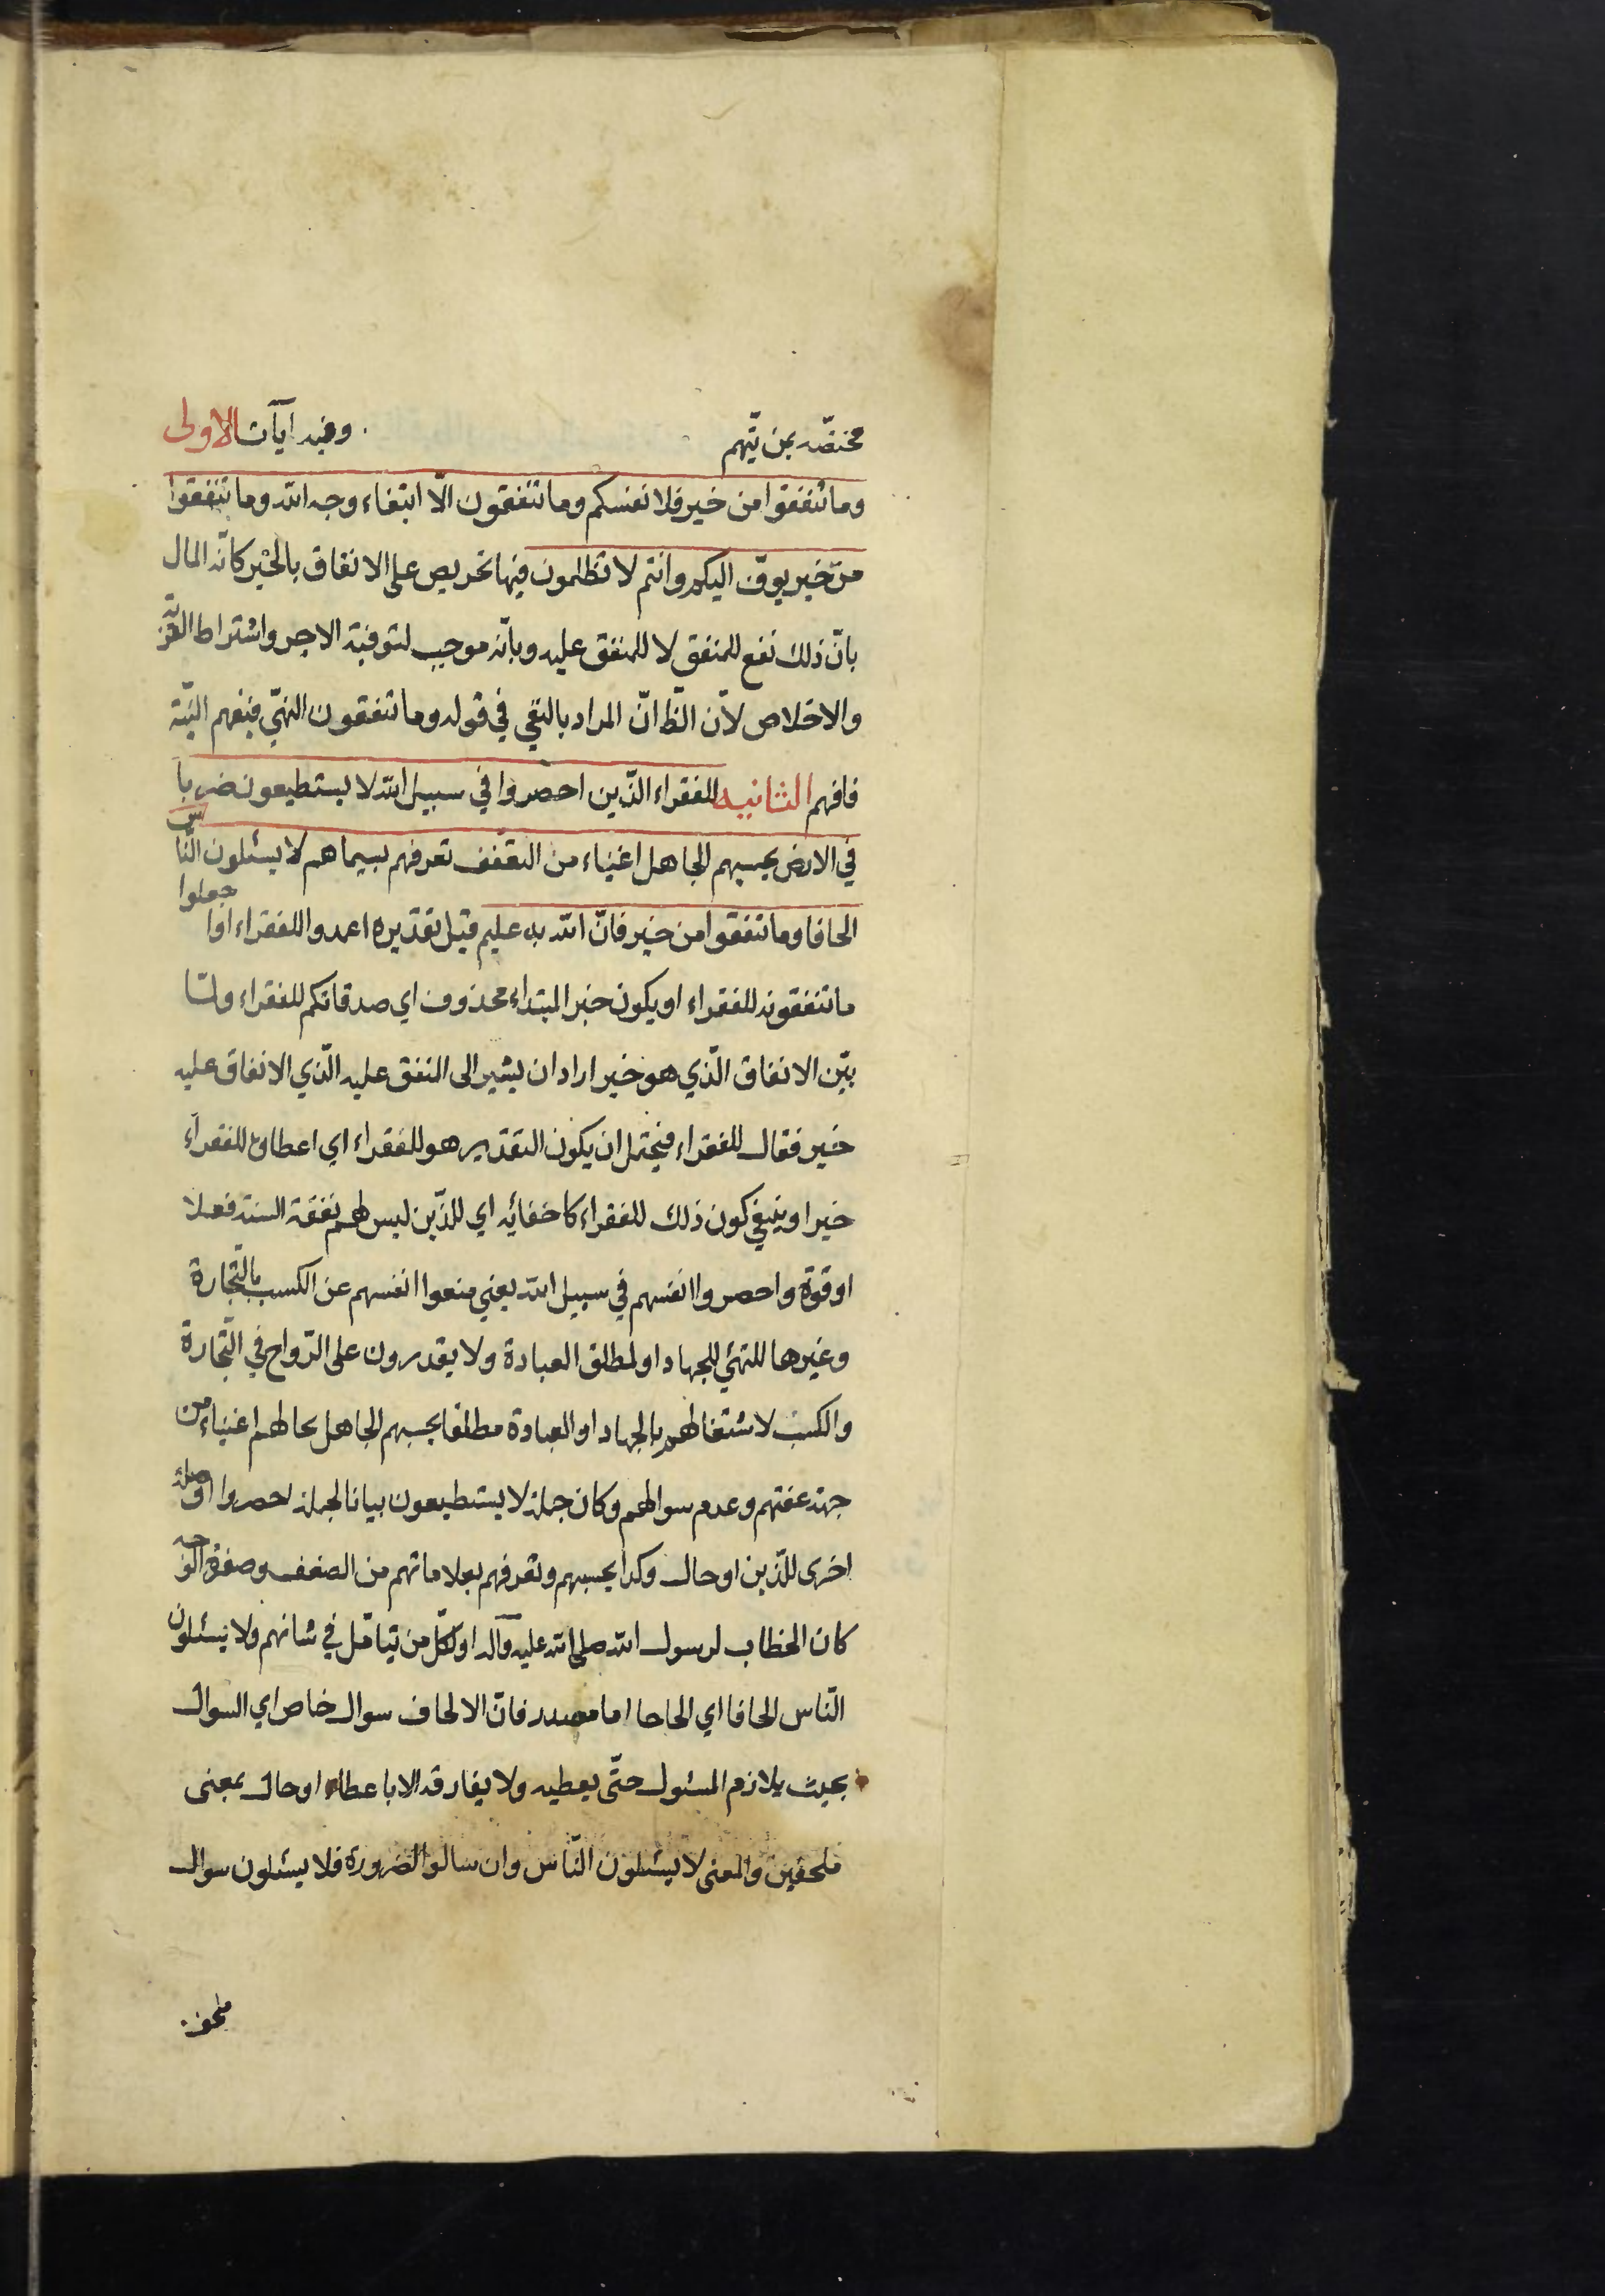 مختصّه بمن يتّهم وفيه ايات الاولى
وما تنفقوا من خير فلانفسكم وما تنفقون الّا ابتغاء وجه الله وما تنفقوا
من خير يوفّ اليكم وانتم لا تظلمون فيها تحريص على الانفاق بالخير كانّه المال
بانّ ذلك نفع للمنفق لا للمنفق عليه وبانّه موجب لتوفية الاجر واشتراط القربة
والاخلاص لانّ الظّ انّ المراد بالنفي في قوله وما تنفقون النهي فيفهم النيّة
فافهم الثانيه للفقراء الّذين احصروا في سبيل الله لا يستطيعون ضربا
في الارض يحسبهم الجاهل اغنياء من التعفّف تعرفهم بسيماهم لا يسئلون النّاس
الحافا وما تنفقوا من خير فانّ الله به عليم قيل تقديره اعمدوا للفقراء او اجعلوا
ما تنفقونه للفقراء او يكون خبر المبتداء محذوف اي صدقاتكم للفقراء ولمّا
بيّن الانفاق الّذي هو خير اراد ان يشير الى المنفق عليه الّذي الانفاق عليه
خير فقال للفقراء فيحتمل ان يكون التقدير هو للفقراء اي اعطاؤه للفقراء
خيرا وينبغي كون ذلك للفقراء كاخفائه اي للّذين ليس لهم نفقة السنة فعلا
او قوة واحصروا انفسهم في سبيل الله يعني منعوا انفسهم عن الكسب بالتّجارة
وغيرها للتهئي للجهاد او لمطلق العبادة ولا يقدرون على الرّواح في التّجارة
والكسب لاشتغالهم بالجهاد او العبادة مطلقا يحسبهم الجاهل بحالهم اغنياء من
جهة عفتهم وعدم سوالهم وكان جملة لا يستطيعون بيانا لجملة احصروا او صلة
اخرى للّذين او حال وكذا يحسبهم وتعرفهم بعلاماتهم من الضعف وصفرة الوجه
كان الخطاب لرسول الله صلى الله عليه وآله او لكلّ من يتامّل في شانهم ولا يسئلون
النّاس الحافا اي الحاحا اما مصدر فانّ الالحاف سوال خاص اي السوال
بحيث يلازم المسئول حتّى يعطيه ولا يفارقه الا باعطاء او حال بمعنى
ملحفين والمعنى لا يسئلون النّاس وان سالوا لضرورة فلا يسئلون سوال
ملحف